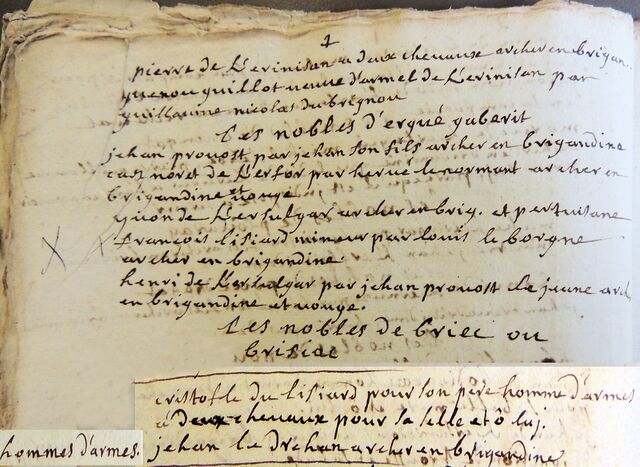 1
pierre de Kerinisan a deux chevaux archer en brigan..
guenou guillot veuve d'armel de Kerinisan par
guillaume nicolas du brignou
Les nobles d'ergué gaberit
jehan provost par jehan son fils archer en brigandine
can noret de Kerfor par hervé le normant archer en
brigandine et vouge
guion de Kersulgar archer en brig. et pertuisane
françois lisiard mineur par louis le borgne
archer en brigandine
henri de Kersulgar par jehan provost le jeune arch.
en brigandine et vouge.
Les nobles de briec ou
briziac
cristofle du lisiard pour son père homme d'armes
à deux chevaux pour sa selle et ô luj.
hommes d'armes.
jehan le Drehan archer en brigandine